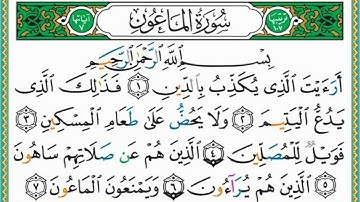 ترتيبها ١٠٧ سُورَةُ الْمَاعُونِ آياتها ٧
بِسْمِ اللَّهِ الرَّحْمَٰنِ الرَّحِيمِ
أَرَءَيْتَ الَّذِي يُكَذِّبُ بِالدِّينِ ١ فَذَٰلِكَ الَّذِي
يَدُعُّ الْيَتِيمَ ٢ وَلَا يَحُضُّ عَلَىٰ طَعَامِ الْمِسْكِينِ ٣
فَوَيْلٌ لِّلْمُصَلِّينَ ٤ الَّذِينَ هُمْ عَن صَلَاتِهِمْ سَاهُونَ
٥ الَّذِينَ هُمْ يُرَآءُونَ ٦ وَيَمْنَعُونَ الْمَاعُونَ ٧